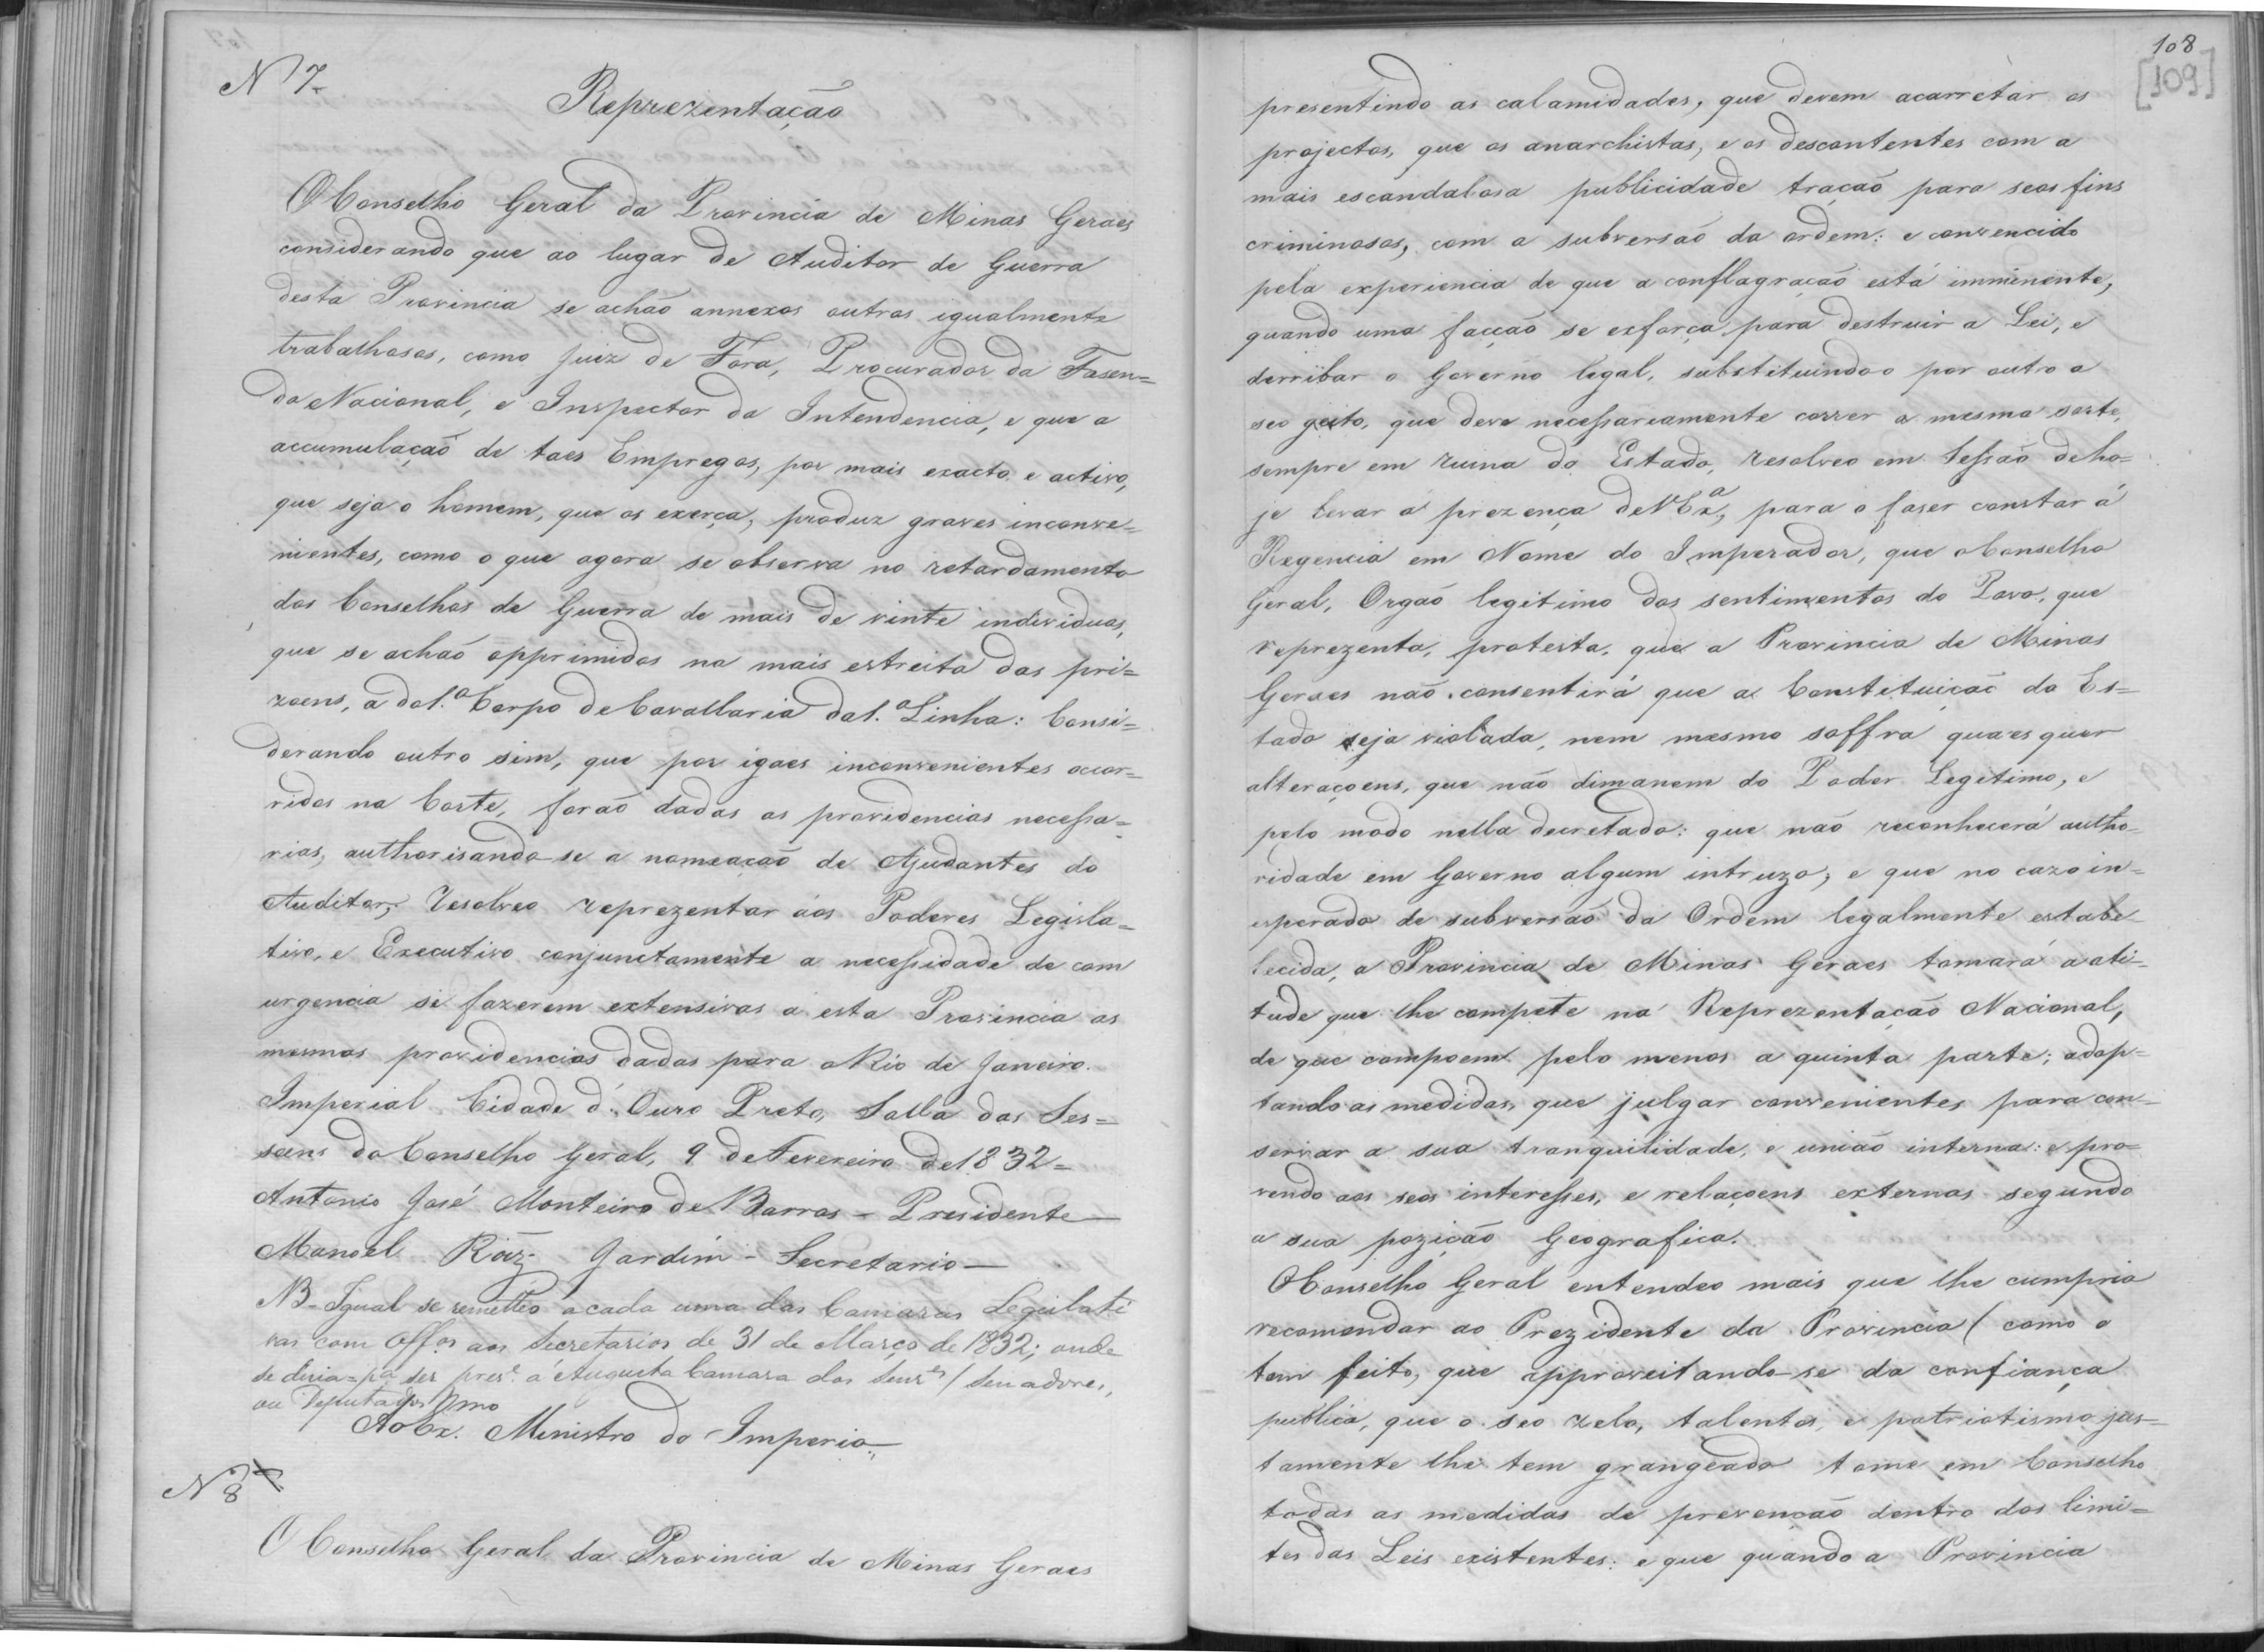 N 7.
Reprezentação
O Conselho Geral da Provincia de Minas Geraes
considerando que ao lugar de Auditor de Guerra
desta Provincia se achão annexos outros igualmente
trabalhosos, como Juiz de Fora, Procurador da Fasen=
da Nacional, e Inspector da Intendencia, e que a
accumulação de taes Empregos, por mais exacto e activo,
que seja o homem, que os exerça, produz graves inconve=
nientes, como o que agora se observa no retardamento
dos Conselhos de Guerra de mais de vinte individuos,
que se achão opprimidos na mais estreita das pri=
zoens, a do 1.º Corpo de Cavallaria da 1.ª Linha: Consi=
derando outro sim, que por igaes inconvenientes occor=
ridos na Corte, forão dadas as providencias necessa=
rias, authorisando-se a nomeação de Ajudantes do
Auditor; Resolveo reprezentar áos Poderes Legisla=
tivo, e Executivo conjunctamente a necessidade de com
urgencia se fazerem extensivas a esta Provincia as
mesmas providencias dadas para o Rio de Janeiro.
Imperial Cidade d'Ouro Preto, Salla das Ses=
soens do Conselho Geral, 9 de Fevereiro de 1832=
Antonio José Monteiro de Barros - Presidente—
Manoel Roiz Jardim - Secretario—
NB - Igual se remetteo a cada uma das Camaras Legislati
vas com Offos aos Secretarios de 31 de Março de 1832; onde
se dizia = pa ser prese á Augusta Camara dos Senres / Senadores,
ou Deputados
Ao Exmo. Ministro do Imperio.
N 8
O Conselho Geral da Provincia de Minas Geraes
108
[109]
presentindo as calamidades, que devem acarretar os
projectos, que os anarchistas, e os descontentes com a
mais escandalosa publicidade tração para seos fins
criminosos, com a subversão da ordem: e convencido
pela experiencia de que a conflagração está imminente,
quando uma facção se exforça para destruir a Lei, e
derribar o Governo legal, substituindo o por outro a
seo geito, que deve necessariamente correr a mesma sorte,
sempre em ruina do Estado, resolveo em Sessão de ho=
je levar á prezença de V. Exa, para o faser constar á
Regencia em Nome do Imperador, que o Conselho
Geral, Orgão legitimo dos sentimentos do Povo, que
reprezenta, protesta, que a Provincia de Minas
Geraes não consentirá que a Constituição do Es=
tado seja violada, nem mesmo soffra quaes quer
alteraçoens, que não dimanem do Poder Legitimo, e
pelo modo nella decretado: que não reconhecerá autho=
ridade em Governo algum intruzo; e que no cazo in=
esperado de subversão da Ordem legalmente estabe
lecida, a Provincia de Minas Geraes tomará a ati=
tude que lhe compete na Reprezentação Nacional,
de que compoem pelo menos a quinta parte; adop=
tando as medidas, que julgar convenientes para con=
servar a sua tranquilidade, e união interna: e pro=
vendo aos seos interesses, e relaçoens externas segundo
a sua pozição Geografica.
O Conselho Geral entendeo mais que lhe cumpria
recomendar ao Prezidente da Provincia (como o
tem feito, que approveitando-se da confiança
publica, que o seo zelo, talentos, e patriotismo jus=
tamente lhe tem grangeado tome em Conselho
todas as medidas de prevenção dentro dos limi=
tes das Leis existentes: e que quando a Provincia